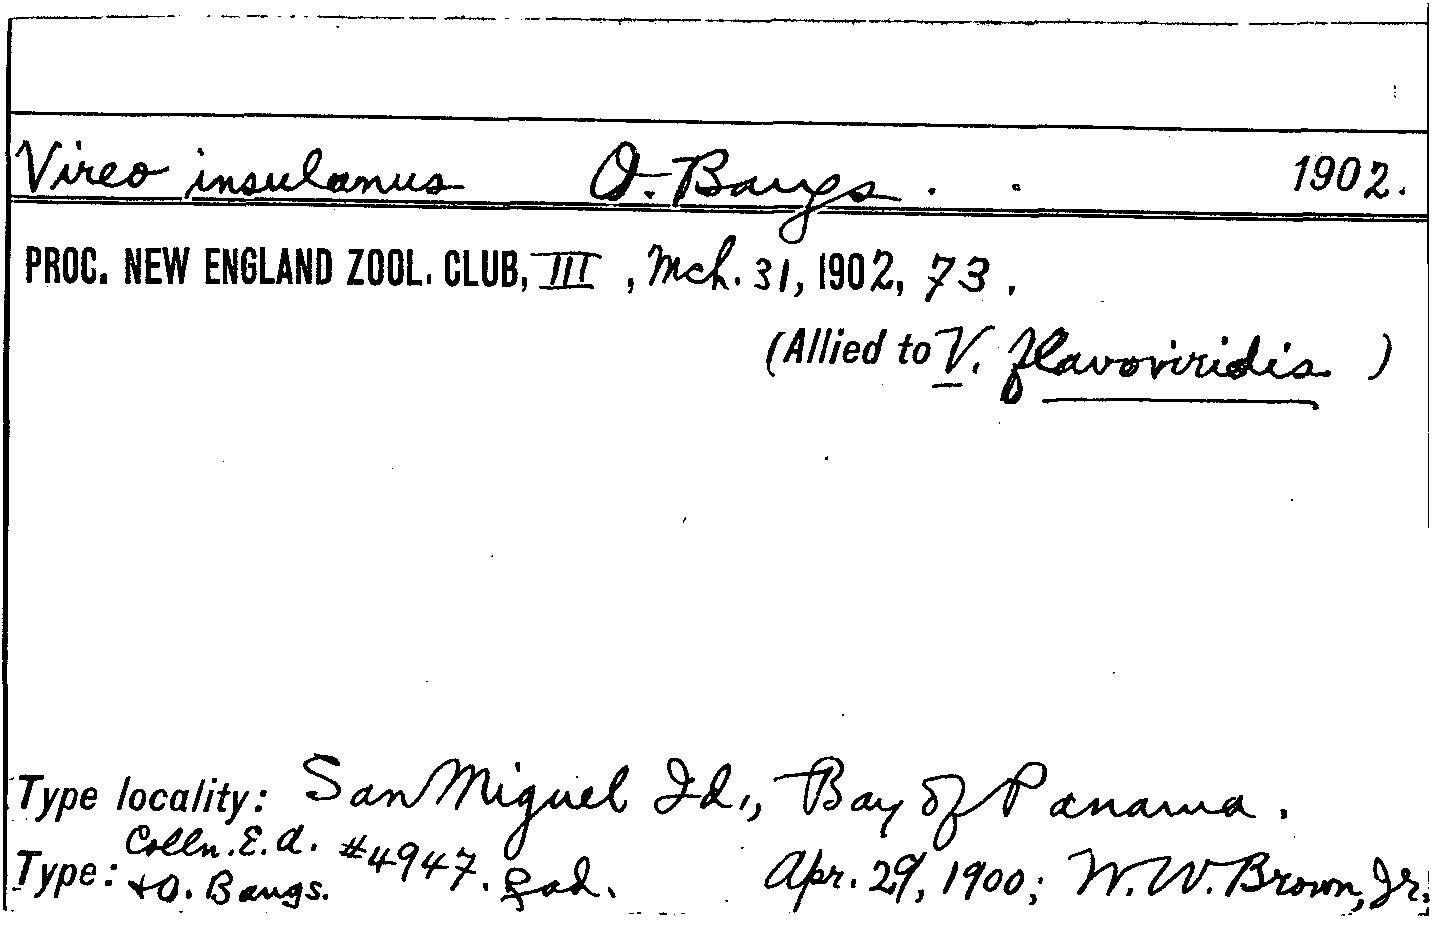 Vireo insulanus O. Bangs . . 1902.
PROC. NEW ENGLAND ZOOL. CLUB, III, Mch. 31, 1902, 73.
(Allied to V. flavoviridis )
Type locality: San Miguel Id., Bay of Panama.
Colln. E. A.
Type: + O. Bangs. #4947. ♀ ad. Apr. 29, 1900; W. W. Brown, Jr.